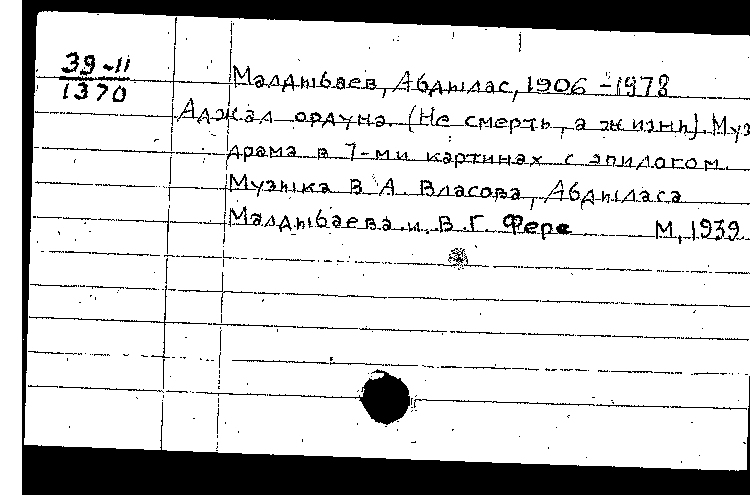 39-11
1370
Малдыбаев, Абдылас, 1906 -1978
Аджал ордуна. (Не смерть, а жизнь). Муз
драма в 7-ми картинах с эпилогом.
Музыка В.А. Власова, Абдыласа
Малдыбаева и В.Г. Фере М, 1939